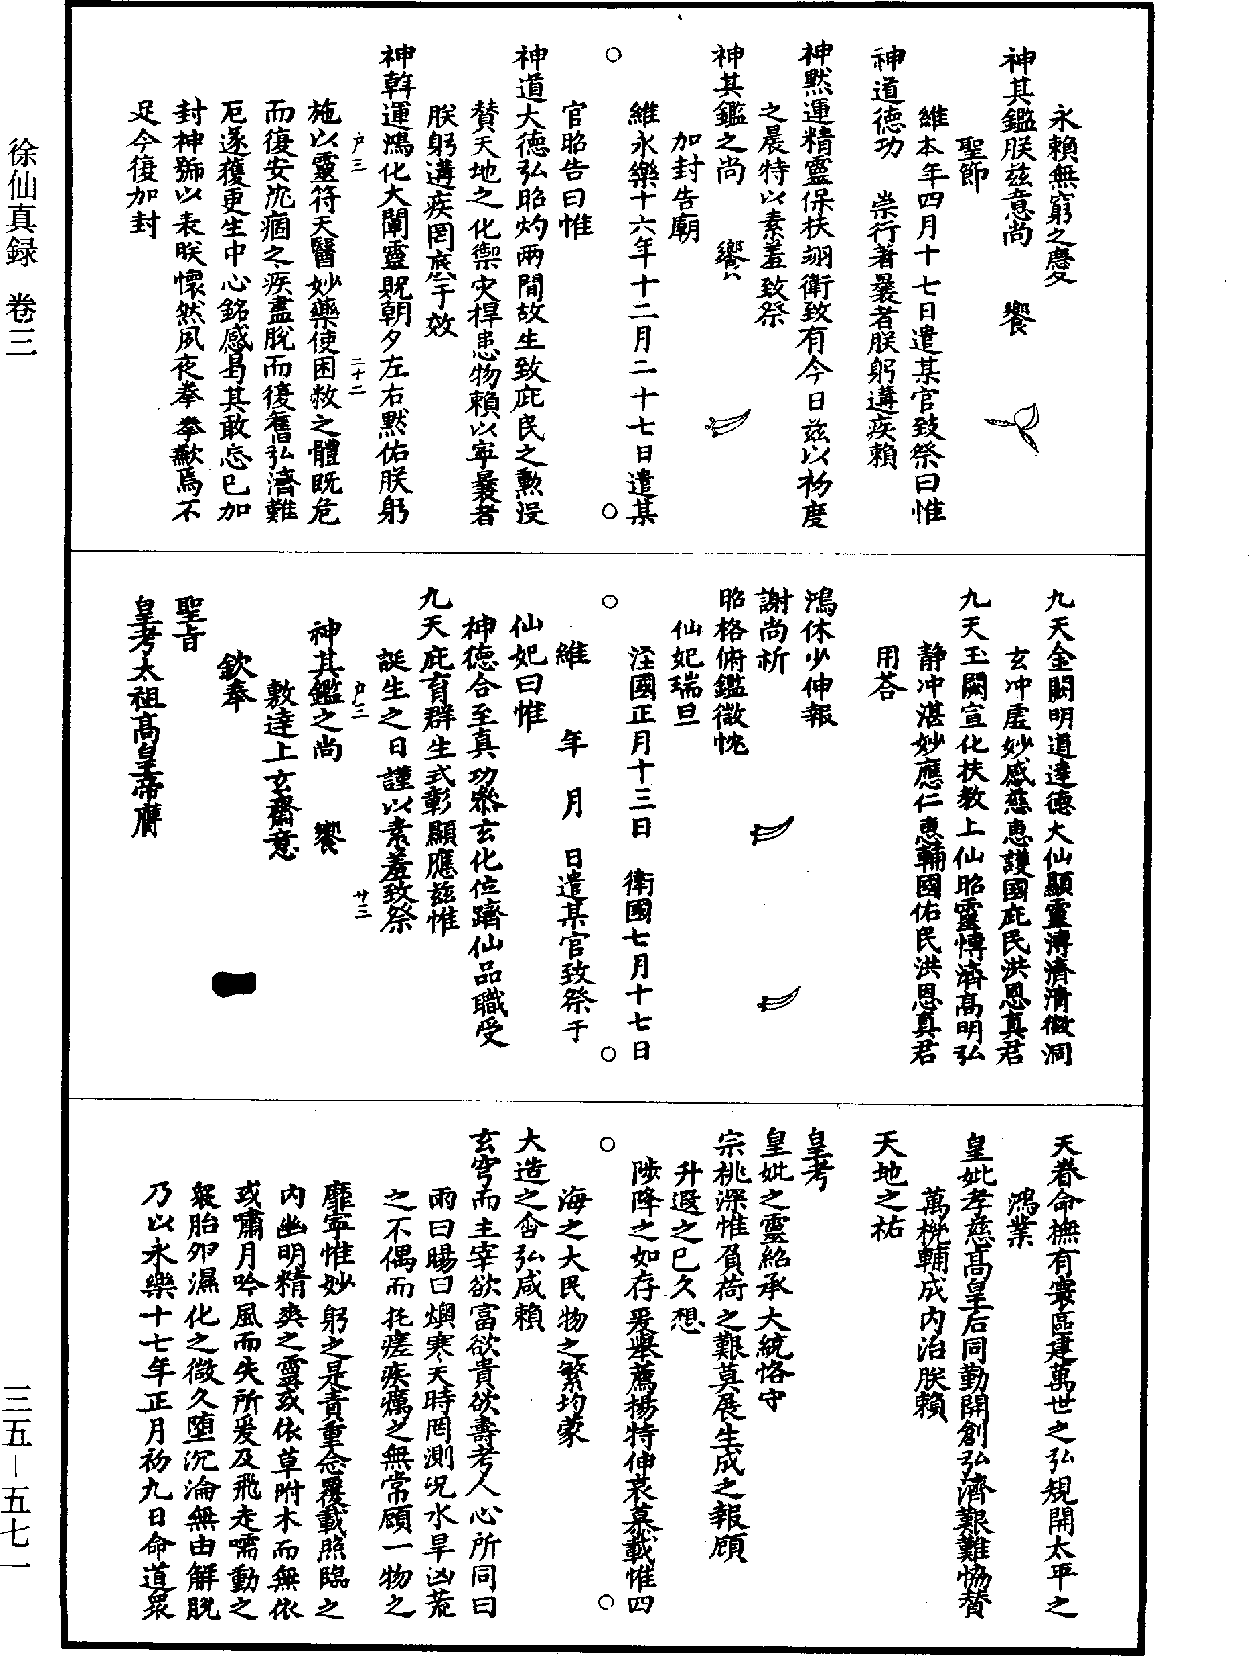 永賴無窮之慶
神其鑑朕兹意尚　饗
聖節
維本年四月十七日遣某官致祭曰惟
神道德功　崇行著曩者朕躬遘疾賴
神黙運精靈保扶翊衛致有今日兹以初度
之晨特以素羞致祭
神其鑑之尚　饗
加封告廟
維永樂十六年十二月二十七日遣某
官昭告曰惟
神道大德弘昭灼兩間故生致庇民之勲没
賛天地之化禦灾捍患物賴以寧曩者
朕躬遘疾罔底于效
神斡運鴻化大闡靈貺朝夕左右黙佑朕躬
户三　二十二
施以靈符天醫妙藥使困敉之體既危
而復安沉痼之疾盡脫而復舊弘濟難
厄遂獲更生中心銘感曷其敢忘已加
封神號以表朕懷然夙夜拳拳歉焉不
足今復加封
九天金闕明道達德大仙顯靈溥濟清微洞
玄冲虚妙感慈惠護國庇民洪恩真君
九天玉闕宣化扶教上仙昭靈慱濟高明弘
静冲湛妙應仁惠輔國佑民洪恩真君
用荅
鴻休少伸報
謝尚祈
昭格俯鑑微忱
仙妃瑞旦
淫國正月十三日　衛國七月十七日
維　年　月　日遣某官致祭于
仙妃曰惟
神德合至真功參玄化位躋仙品職受
九天庇育群生式彰顯應兹惟
誕生之日謹以素羞致祭
户三　廿三
神其鑑之尚　饗
敷達上玄齋意
欽奉
聖旨
皇考太祖高皇帝膺
天眷命撫有寰區建萬世之弘規開太平之
鴻業
皇妣孝慈高皇后同勤開創弘濟艱難恊賛
萬機輔成内治朕賴
天地之祐
皇考
皇妣之靈紹承大統恪守
宗祧深惟負荷之艱莫展生成之報顧
升遐之已久想
陟降之如存爰舉薦揚特伸哀慕載惟四
海之大民物之繁均蒙
大造之含弘咸賴
玄穹而主宰欲富欲貴欲壽考人心所同曰
雨曰暘曰燠寒天時罔測况水旱凶荒
之不偶而扎瘥疾癘之無常顧一物之
靡寧惟妙躬之是責重念覆載照臨之
内幽明精爽之靈或依草附木而無依
或嘯月吟風而失所爰及飛走蠕動之
衆胎卵濕化之微久墮沉淪無由解脫
乃以永樂十七年正月初九日命道衆
徐仙真録　卷三
三五－五七一